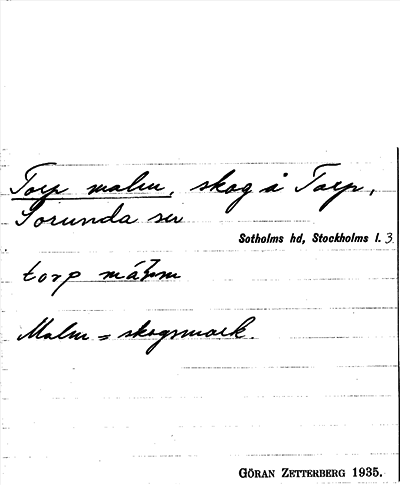 Torp malm, skog å Torp,
Sorunda sn
Sotholms hd, Stockholms l. 3
torp
Malm = skogsmark.
GÖRAN ZETTERBERG 1935.